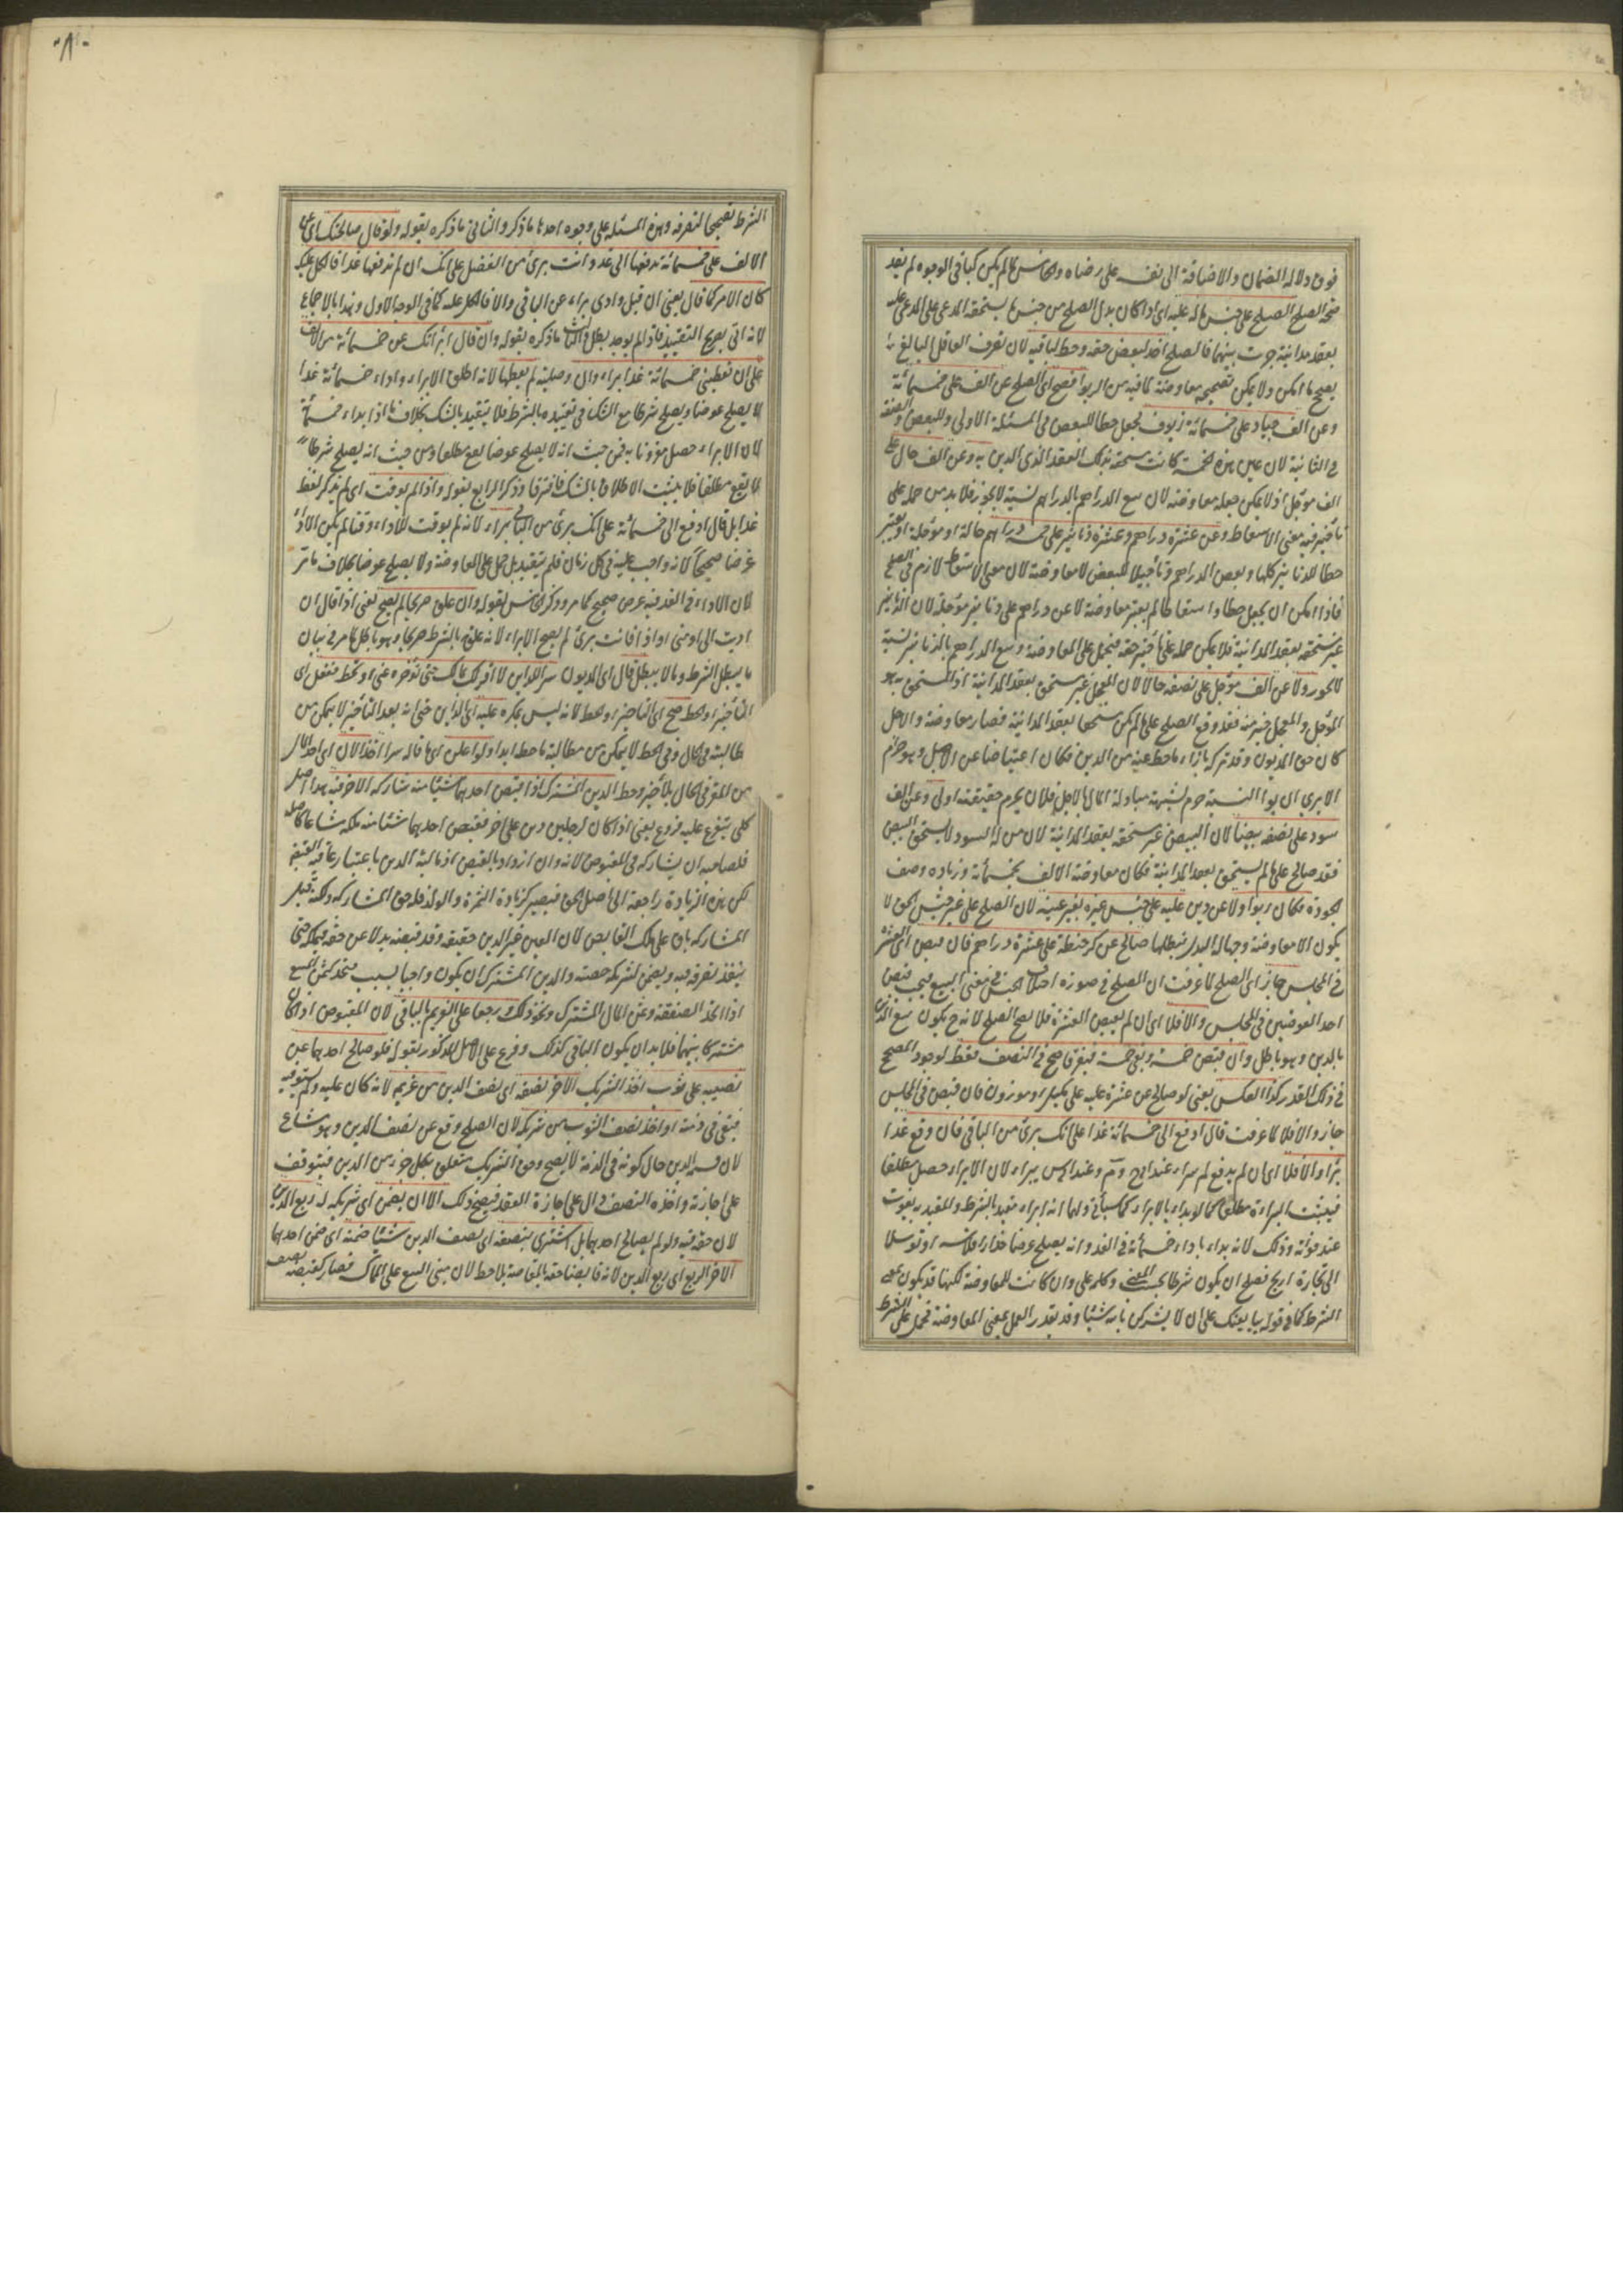 فوق دلالة الضمان والاضافة الى نفسه على رضاه والخامس ما لم يكن كباقى الوجوه لم يفد
صحة الصلح الصلح على جنس ماله عليه اى اذا كان بدل الصلح من جنس ما يستحقه المدعى على المدعى عليه
بعقد مداينة جرت بينهما فالصلح اخذ لبعض حقه وحط لباقيه لان تصرف العاقل البالغ
يصح ما امكن ولا يمكن تصحيحه معاوضة لما فيه من الربوا فصح اى الصلح عن الف على خمسمائة
وعن الف جياد على خمسمائة زيوف بجعل حطا للبعض فى المسئلة الاولى وللبعض والصفة
فى الثانية لان عين هذه الخمسة كانت مستحقة بذلك العقد الذى الدين به وعن الف حال على
الف مؤجل اذ لا يمكن جعله معاوضة لان بيع الدراهم بالدراهم نسيئة لا يجوز فلا بد من حمله على
تأخير فيه معنى الاسقاط وعن عشرة دراهم وعشرة دنانير على خمسة دراهم حالة او مؤجلة اذ يعتبر
حطا للدنانير كلها وبعض الدراهم وتأجيلا للبعض لا معاوضة لان معنى الاسقاط لازم فى الصلح
فاذا امكن ان يجعل حطا واسقاطا لم يعتبر معاوضة لا عن دراهم على دنانير مؤجلة لان الدنانير
غير مستحقة بعقد المداينة فلا يمكن حمله على تأخير حقه فيحمل على المعاوضة وبيع الدراهم بالدنانير نسيئة
لا يجوز ولا عن الف مؤجل على نصفه حالا لان المعجل غير مستحق بعقد المداينة اذ المستحق به هو
المؤجل والمعجل خير منه فقد وقع الصلح على ما لم يكن مستحقا بعقد المداينة فصار معاوضة والاجل
كان حق المديون وقد تركه بازاء ما حط عنه من الدين فكان اعتياضا عن الاجل وهو حرام
الا يرى ان ربوا النسيئة حرم لشبهة مبادلة المال بالاجل فلان يحرم حقيقته اولى وعن الف
سود على نصفه بيضا لان البيض غير مستحقة بعقد المداينة لان من له السود لا يستحق البيض
فقد صالح على ما لم يستحق بعقد المداينة فكان معاوضة الالف بخمسمائة وزيادة وصف
الجودة فكان ربوا ولا عن دين عليه على جنس غيره بغير عينه لان الصلح على غير جنس الحق لا
يكون الا معاوضة وجهالة البدل تبطلها صالح عن كر حنطة على عشرة دراهم فان قبض اى العشرة
فى المجلس جاز اى الصلح لما عرفت ان الصلح فى صورة اختلاف الجنس فى معنى البيع فيجب قبض
احد العوضين فى المجلس والا فلا اى ان لم يقبض العشرة فلا يصح الصلح لانه ح يكون بيع الدين
بالدين وهو باطل وان قبض خمسة وبقى خمسة فتفرقا صح فى النصف فقط لوجود المصحح
فى ذلك القدر كذا العكس يعنى لو صالح عن عشرة عليه على مكيل او موزون فان قبض فى المجلس
جاز والا فلا لما عرفت قال ادفع الى خمسمائة غدا على انك برئ من الباقى فان وقع غدا
برأ والا فلا اى ان لم يدفع لم يبرأ عند ابى ح وم وعند ابى س يبرأ لان الابراء حصل مطلقا
فيثبت البراءة مطلقا كما لو بدأ بالابراء كما سيأتى ولهما انه ابراء مقيد بالشرط والمقيد به يفوت
عند فواته وذلك لانه بدأ باداء خمسمائة فى الغد وانه يصلح غرضا حذار افلاسه او توسلا
الى تجارة اربح فصلح ان يكون شرطا بحسب المعنى وكلمة على وان كانت للمعاوضة لكنها قد يكون بمعنى
الشرط كما فى قوله يبايعنك على ان لا يشركن بالله شيئا وقد تعذر العمل بمعنى المعاوضة فحمل على الشرط
٨٠
الشرط تصحيحا لتصرفه وهذه المسئلة على وجوه احدها ما ذكر والثانى ما ذكره بقوله ولو قال صالحتك اى عن
الالف على خمسمائة تدفعها الى غد وانت برئ من الفضل على انك ان لم تدفعها غدا فالكل عليك
كان الامر كما قال يعنى ان قبل وادى برأ عن الباقى والا فالكل عليه كما فى الوجه الاول وهذا بالاجماع
لانه اتى بصريح التقييد فاذا لم يوجد بطل والثالث ما ذكره بقوله وان قال ابرأتك عن خمسمائة من الالف
على ان تعطينى خمسمائة غدا برأ وان وصلية لم يعطها لانه اطلق الابراء واداء خمسمائة غدا
لا يصلح عوضا ويصلح شرطا مع الشك فى تقييده بالشرط فلا يتقيد بالشك بخلاف ما اذا بدأ باداء خمسمائة
لان الابراء حصل مقرونا به فمن حيث انه لا يصلح عوضا يقع مطلقا ومن حيث انه يصلح شرطا
لا يقع مطلقا فلا يثبت الاطلاق بالشك فافترقا وذكر الرابع بقوله واذا لم يوقت اى لم يذكر لفظ
غدا بل قال ادفع الى خمسمائة على انك برئ من الباقى برأ لانه لم يوقت للاداء وقتا لم يكن الاداء
غرضا صحيحا لانه واجب عليه فى كل زمان فلم يتقيد بل حمل على المعاوضة ولا يصلح عوضا بخلاف ما مر
لان الاداء فى الغد فيه غرض صحيح كما مر وذكر الخامس بقوله وان علق صريحا لم يصح يعنى اذا قال ان
اديت الى او متى او اذا فانت برئ لم يصح الابراء لانه علق بالشرط صريحا وهو باطل كما مر فى بيان
ما يبطل الشرط وما لا يبطل قال اى المديون سرا للداين لا اقر لك بمالك حتى تؤخره عنى او تحط ففعل اى
التأخير او الحط صح اى التأخير او الحط لانه ليس بمكره عليه اى الداين حتى انه بعد التأخير لا يمكن من
مطالبته فى الحال وفى الحط لا يتمكن من مطالبة ما حط ابدا ولو اعلن اى ما قاله سرا اخذ الان اى اخذ المال
من المقر فى الحال بلا تأخير وحط الدين المشترك اذا قبض احدهما شيئا منه شاركه الاخر فيه هذا اصل
كلى يتفرع عليه فروع يعنى اذا كان لرجلين دين على اخر فقبض احدهما شيئا منه ملكه مشاعا كاصله
فلصاحبه ان يشاركه فى المقبوض لانه وان ازداد بالقبض اذ مالية الدين باعتبار عاقبة القبض
لكن هذه الزيادة راجعة الى اصل الحق فيصير كزيادة الثمرة والولد فله حق المشاركة ولكنه قبل
المشاركة باق على ملك القابض لان العين غير الدين حقيقة وقد قبضه بدلا عن حقه فيملكه حتى
ينفذ تصرفه فيه ويضمن لشريكه حصته والدين المشترك ان يكون واجبا بسبب متحد كثمن المبيع
اذا اتحد الصفقة وثمن المال المشترك ونحو ذلك ورجعا على الغريم بالباقى لان المقبوض اذا كان
مشتركا بينهما فلا بد ان يكون الباقى كذلك وفرع على الاصل المذكور بقوله فلو صالح احدهما عن
نصيبه على ثوب اخذ الشريك الاخر نصفه اى نصف الدين من غريمه لانه كان عليه ولم يستوفيه
فبقى فى ذمته او اخذ نصف الثوب من شريكه لان الصلح وقع عن نصف الدين وهو مشاع
لان قسمة الدين حال كونه فى الذمة لا يصح وحق الشريك متعلق بكل جزء من الدين فيتوقف
على اجازته واخذه النصف دال على اجازة العقد فيصح ذلك الا ان يضمن اى شريكه له ربع الدين
لان حقه فيه ولو لم يصالح احدهما بل اشترى بنصفه اى نصف الدين شيئا ضمنه اى ضمن احدهما
الاخر الربع اى ربع الدين لانه قابض حقه بالمقاصة بلا حط لان مبنى البيع على المماكسة فصار كقبضه نصف